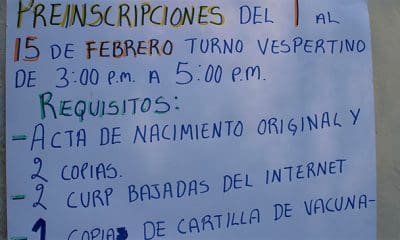 PREINSCRIPCIONES DEL 1 AL
15 DE FEBRERO TURNO VESPERTINO
DE 3:00 P.M. A 5:00 P.M.
REQUISITOS:
- ACTA DE NACIMIENTO ORIGINAL Y
2 COPIAS.
- 2 CURP BAJADAS DEL INTERNET
- 1 COPIA DE CARTILLA DE VACUNA-